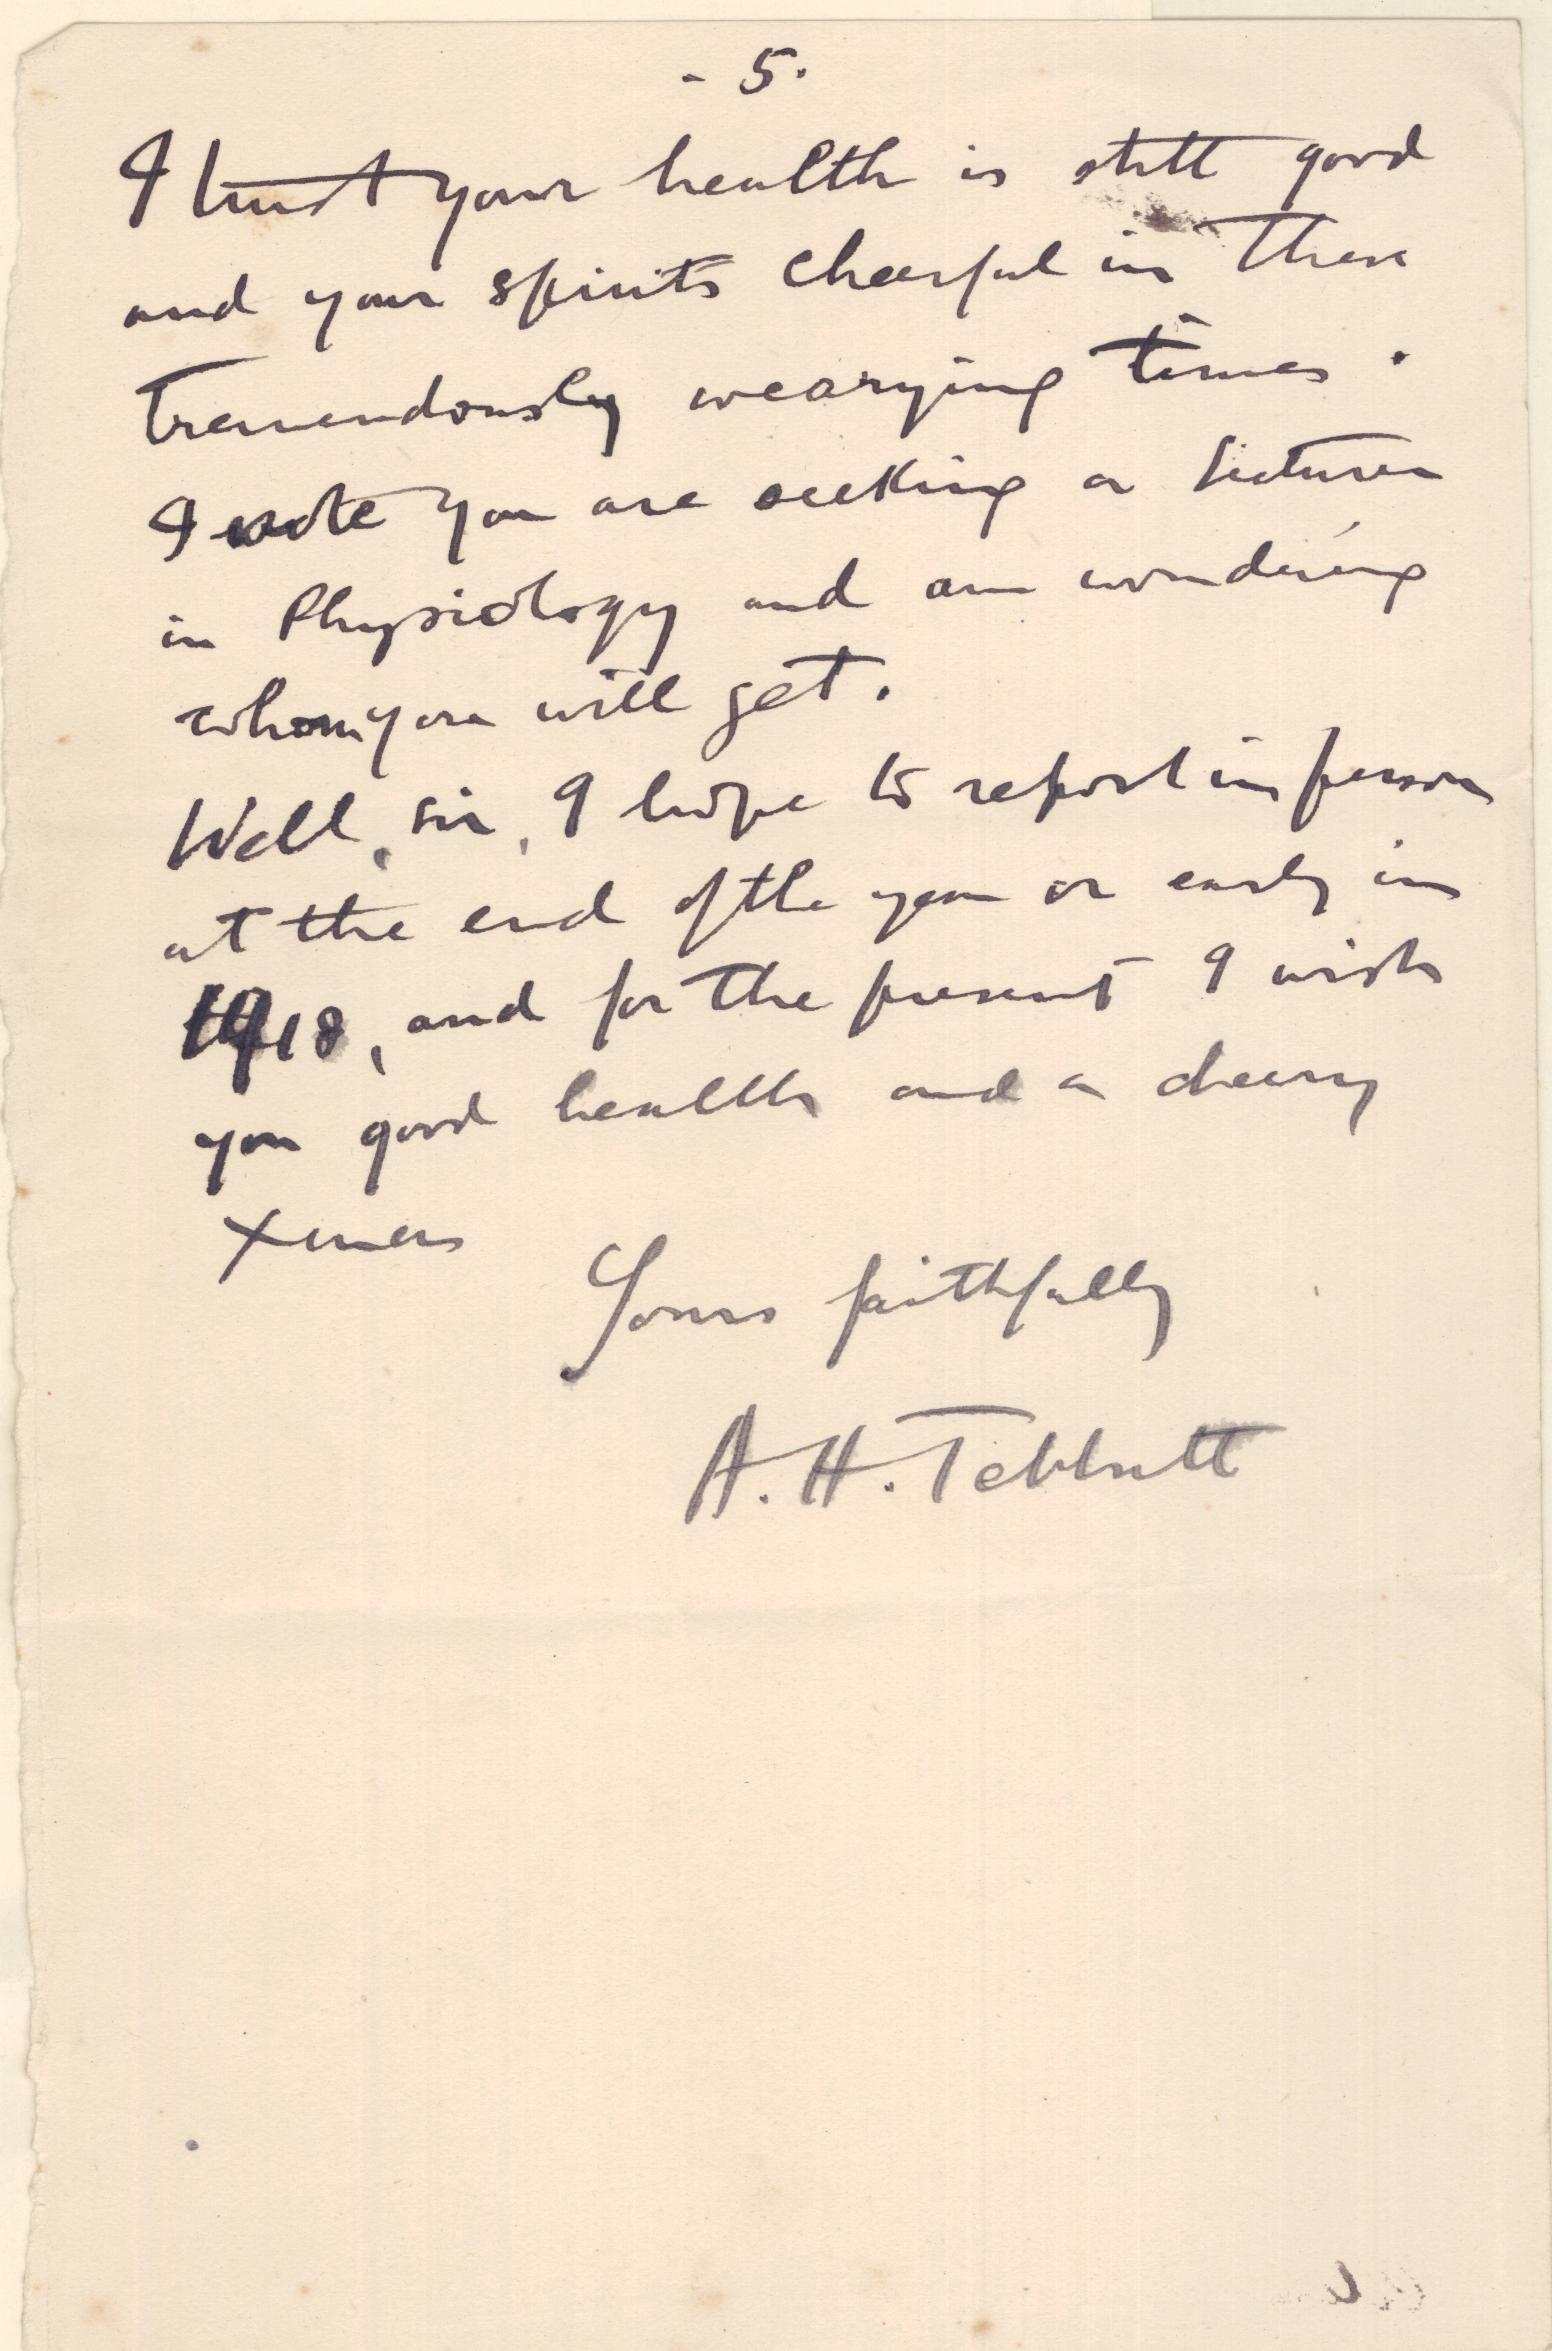 - 5.
I trust your health is still good
and your spirits cheerful in these
tremendously wearying times.
I note you are seeking a lecturer
in Physiology and am wondering
whom you will get.
Well, sir, I hope to report in person
at the end of the year or early in
1918, and for the present I wish
you good health and a cheery
Xmas
Yours faithfully
A. H. Tebbutt